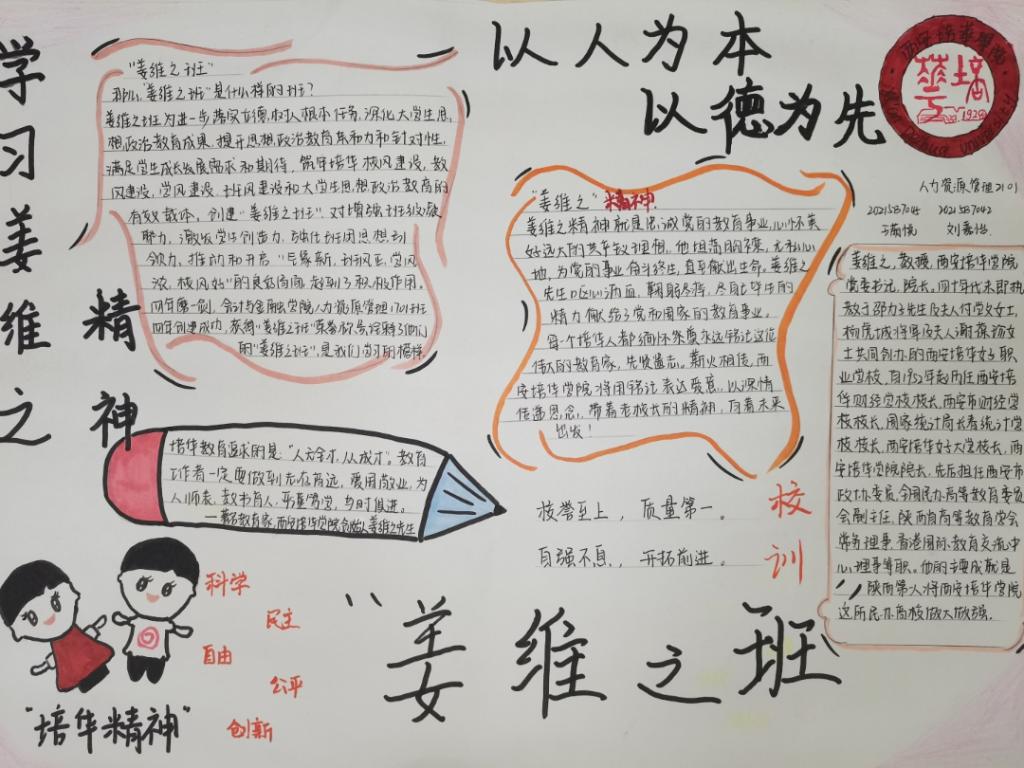 学习姜维之
精神
以人为本
以德为先
"姜维之班"
那么"姜维之班"是什么样的班?
姜维之班为进一步落实立德树人根本任务,深化大学生思
想政治教育成果,提升思想政治教育亲和力和针对性,
满足学生成长发展需求和期待,领导培华校风建设,教
风建设,学风建设,班风建设和大学生思想政治教育的
有效载体,创建"姜维之班"对增强班级凝
聚力,激发学生创造力,强化班团思想引
领力,推动和开启"
浓,校风好"的良好局面,起到了积极作用。
会计与金融学院人力资源管理1701班
创建成功,获得"姜维之班"荣誉称号,
的"姜维之班",是我们学习的榜样
"姜维之"精神
姜维之精神就是忠诚党的教育事业,心怀美
好远大的共产主义理想,他坦荡明强,无私心
地,为党的事业奋斗终生,直至献出生命。姜维之
先生呕心沥血,鞠躬尽瘁,尽自己毕生的
精力献给了党和国家的教育事业。
每个培华人都缅怀崇爱永远铭记这位
伟大的教育家,先生遗志。薪火相传,西
安培华学院将用铭记表达爱意,以深情
传递思念,带着老校长的精神,向着未来
出发!
西安培华学院
Xi'an Peihua University
培华
1928
人力资源管理2101
2021537045 2021537042
姜维之,教授,西安培华学院
党委书记,院长。四十年代末即执
教于邵力子先生及夫人付学文女士,
杨虎城将军及夫人谢葆贞女
士共同创办的西安培华女子职
业学校,自1952年起历任西安培
华财经学校校长,西安市财经学
校校长,国家统计局长春统计学
校校长,西安培华女子大学校长,西
安培华学院院长,先后担任西安市
政协委员,全国民办高等教育委员
会副主任,陕西省高等教育学会
常务理事,香港国际教育交流中
心理事等职。他的主要成就是
陕西第一人将西安培华学院
这所民办高校做大做强。
培华教育追求的是:"人文全才,从成才"。教育
工作者一定要做到志存高远,爱国敬业,为
人师表,教书育人,严谨笃学,与时俱进。
——著名教育家,西安培华学院创始人姜维之先生
校誉至上,质量第一。
自强不息,开拓前进。
校训
科学
民主
自由
公平
创新
"培华精神"
"姜维之班